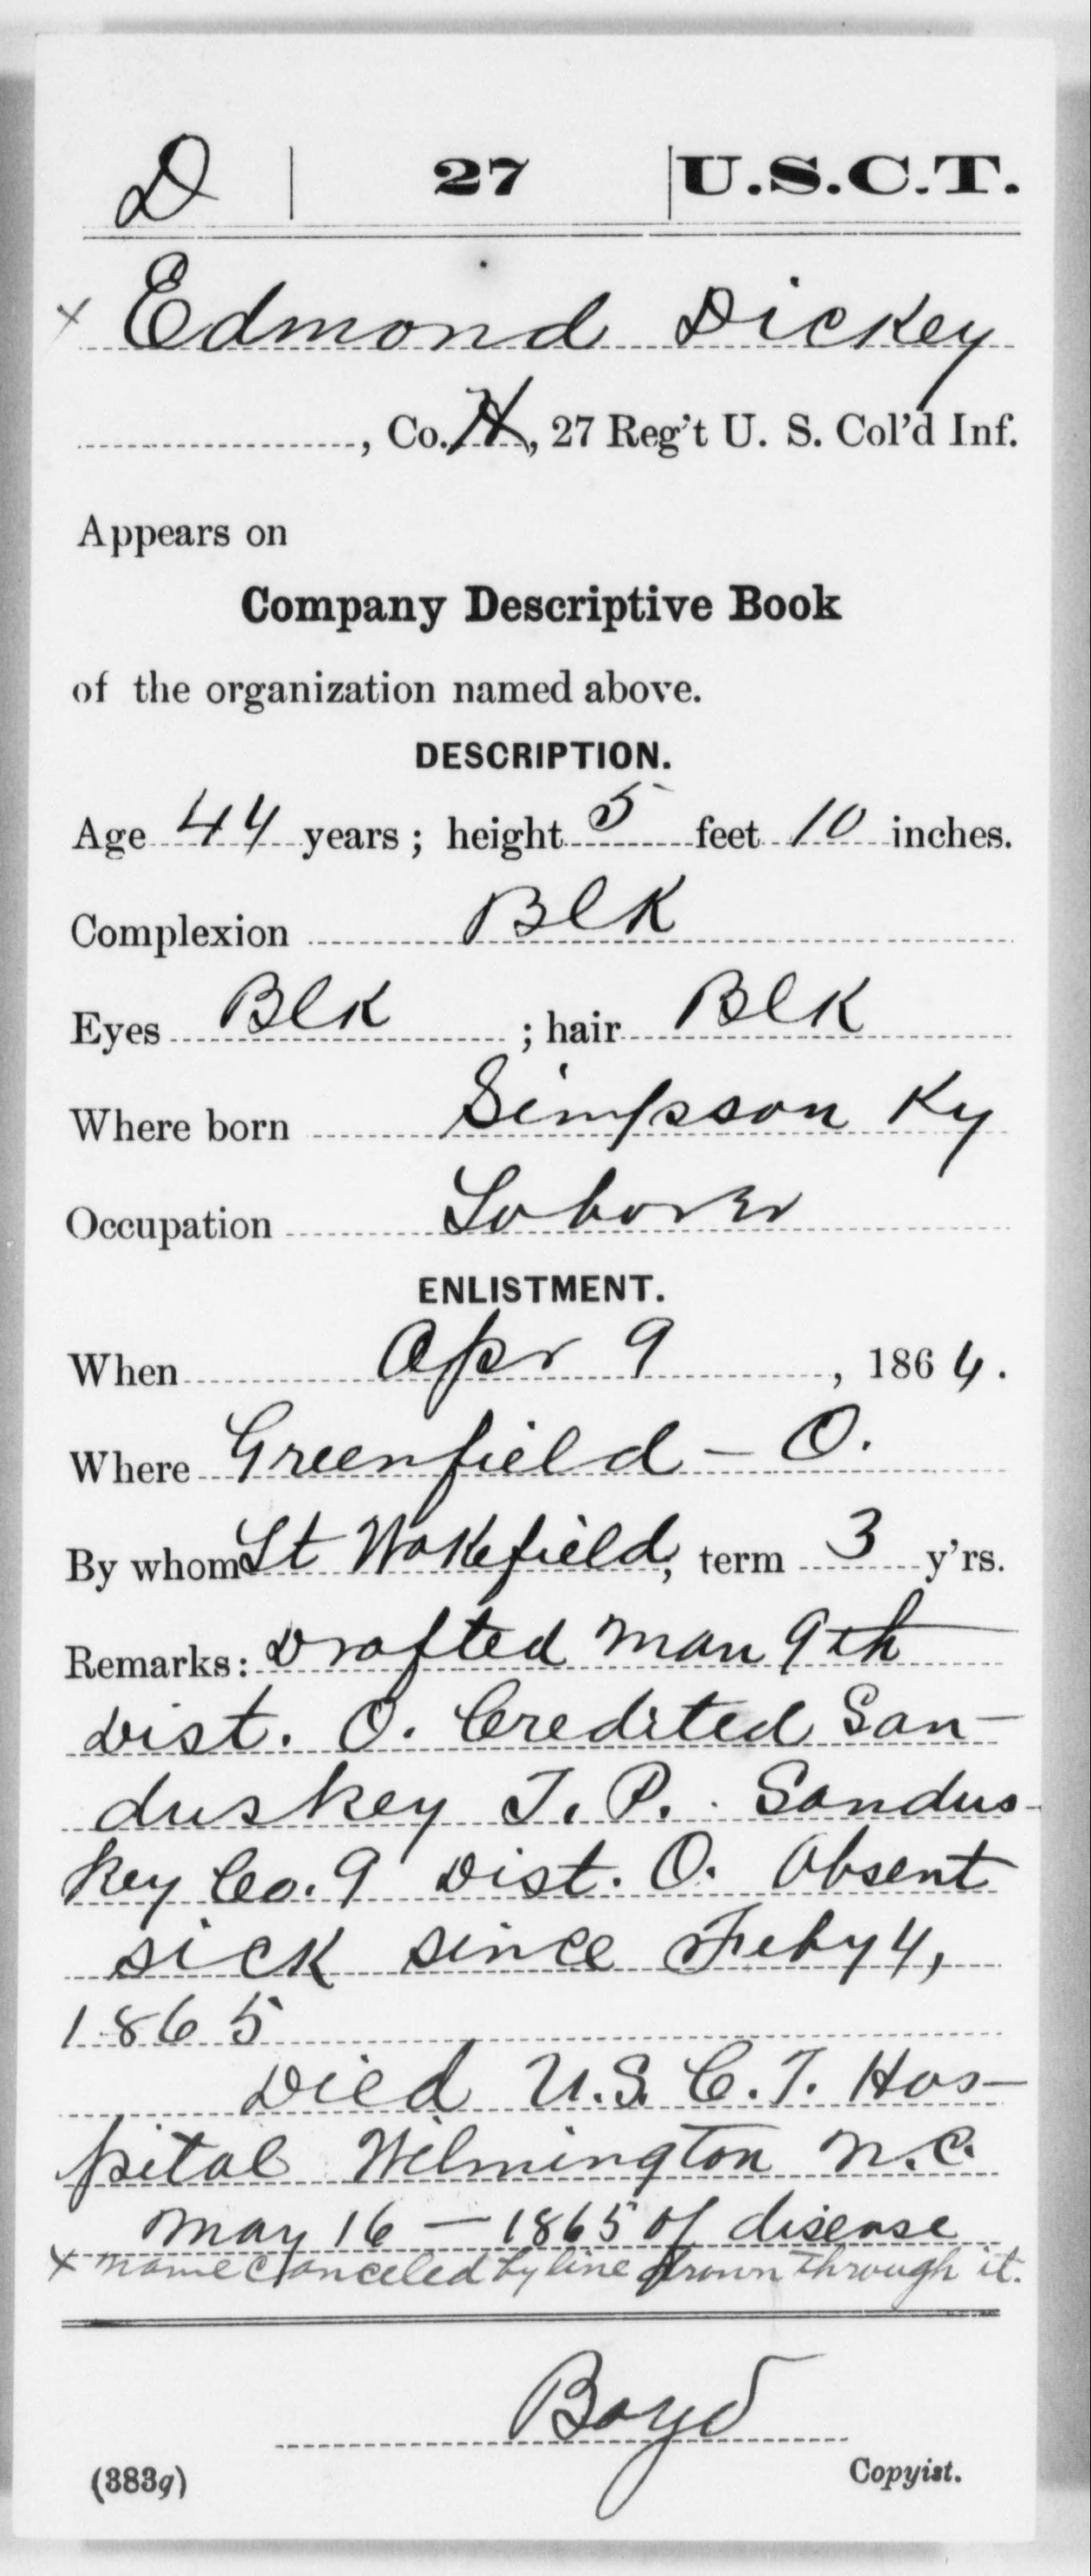 D | 27 | U.S.C.T.
x Edmond Dickey
, Co. H, 27 Reg't U. S. Col'd Inf.
Appears on
Company Descriptive Book
of the organization named above.
DESCRIPTION.
Age 44 years; height 5 feet 10 inches.
Complexion Blk
Eyes Blk ; hair Blk
Where born Simpson Ky
Occupation Laborer
ENLISTMENT.
When Apr 9, 1864.
Where Greenfield - O.
By whom Lt Wakefield; term 3 y'rs.
Remarks: Drafted man 9th
Dist. O. Credited San-
duskey T. P. Sandus-
key Co. 9 Dist. O. Absent
sick since Feby 4,
1865
Died U.S.C.T. Hos-
pital Wilmington N.C.
May 16 - 1865 of disease
x Name canceled by line drawn through it.
Boyd
(383g) Copyist.